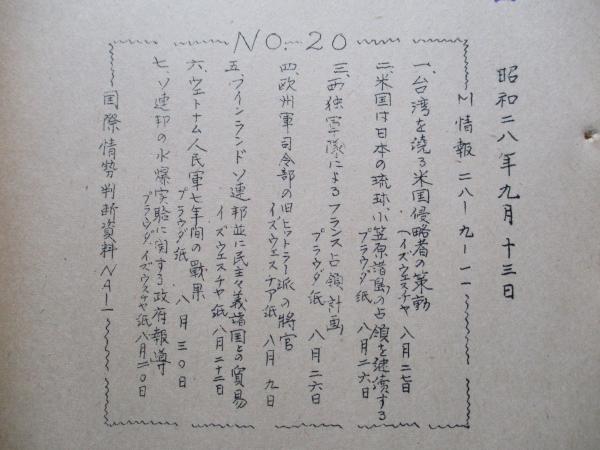 昭和二八年九月十三日
M情報二八ー九ー一一
NO. 20
一、台湾を遶る米国侵略者の策動
(イズウエスチヤ 八月二七日
二、米国は日本の琉球、小笠原諸島の占領を継続する
プラウダ紙 八月二六日
三、西独軍隊によるフランス占領計画
プラウダ紙 八月二六日
四、欧州軍司令部の旧ヒットラー派の将官
イズウエスチア紙 八月九日
五、フインランドソ連邦並に民主々義諸国との貿易
イズウエスチヤ紙 八月二十二日
六、ウエトナム人民軍七年間の戰果
プラウダ紙 八月三〇日
七、ソ連邦の水爆実験に関する政府報導
プラウダ、イズウエスチヤ紙八月二〇日
国際情勢判断資料NA1